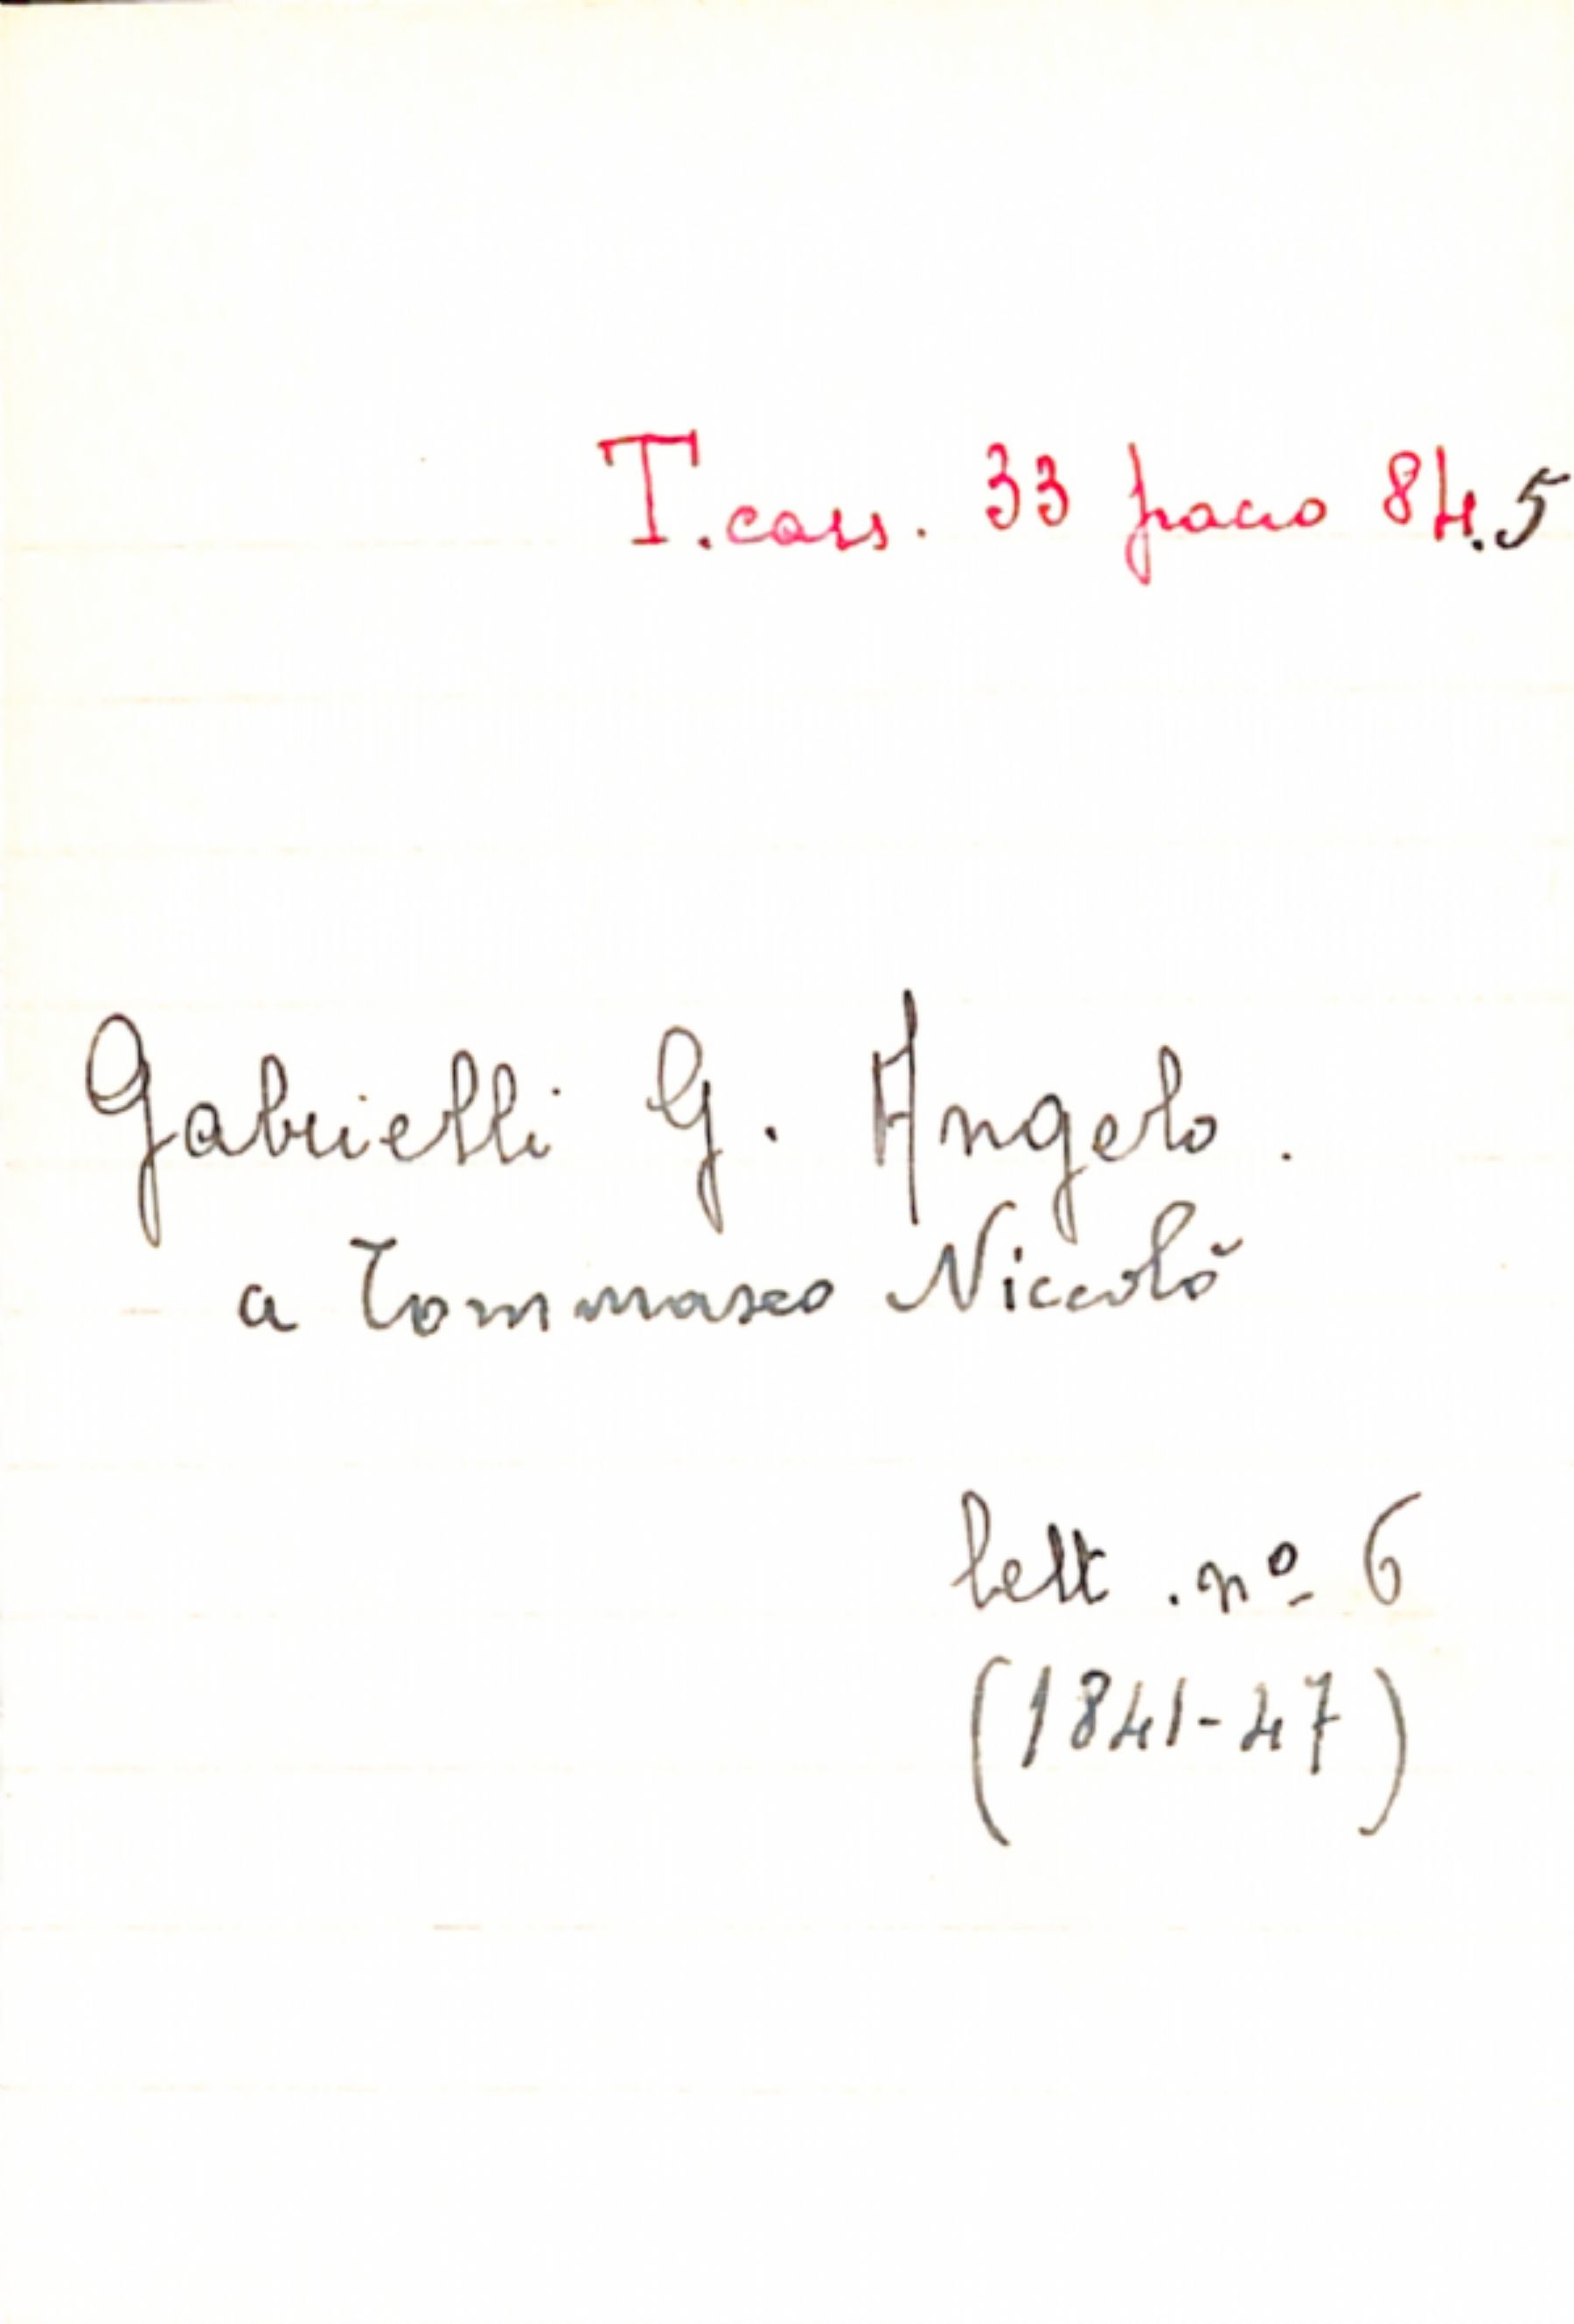 T. cass. 33 fascio 84.5
Gabrielli G. Angelo.
a Tommaseo Niccolò
lett. nº 6
(1841-47)